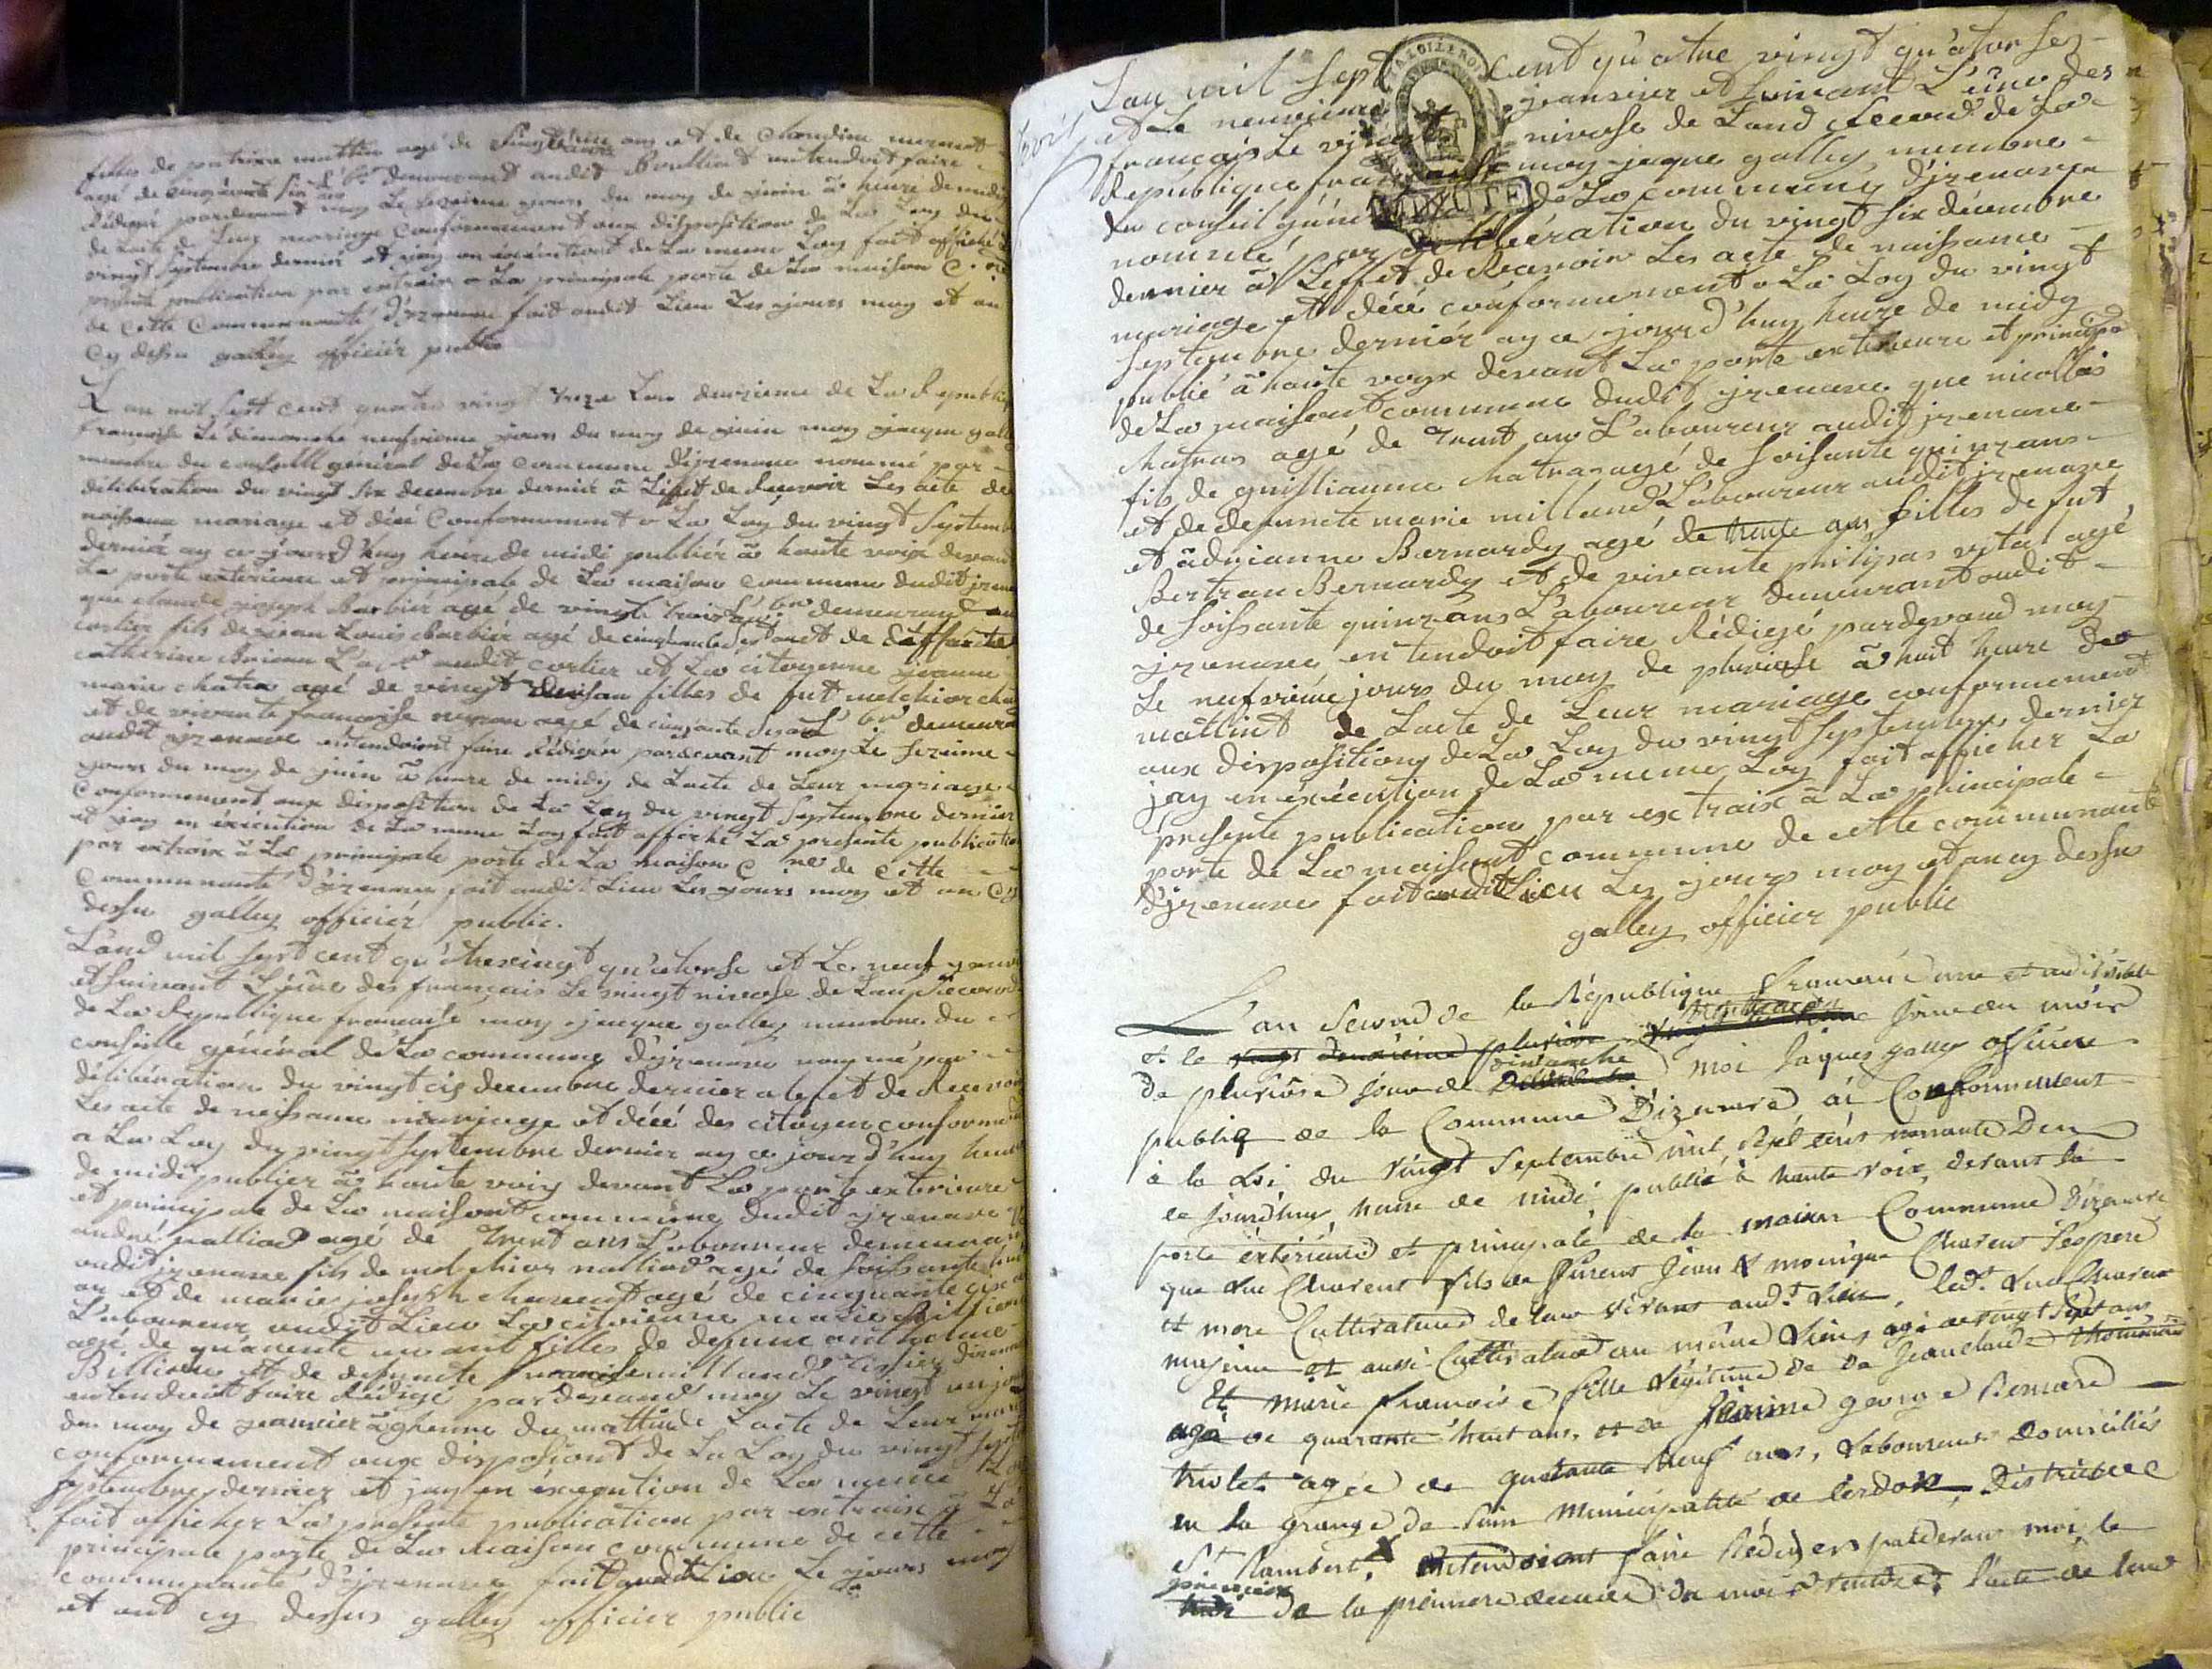 filles de patrixe mattin agé de ans et de Claudine mermet
agé de cinqúante six ans L'br demeurant audit Boullied entendoit faire
Rédigér pardevant moy Le sezieme jours du moy de juin à heure de midi
de Lacte de Leur mariage conformement aux disposition de La Loy du
vingt Septembre dernier et jay en éxécution de La meme Loy fait affiché
presente publication par extraix a La principale porte de La maison C. ne
de Cette Communauté d'jzenave fait audit Lieu Les jours moy et an
Cy dessu galley officiér public
L'an mil sept cent quatre vingt treze Lan deuzieme de La Republiq
francoisse Le dimanche neufvieme jours du moy de juin moy jacque galley
membre du conseill général de La commune d'jzenave nommé par
délibération du vingt six decembre dernier à L'éfet de Recevoir Les acte de
naissance mariage et décé Conformement a La Loy du vingt Septemb
derniér ay ce jourd'huy heure de midi publiér à haute voix devant
La porte exterieure et principale de La maison commune dudit jzenave
que claude joseph Barbiér agé de vingt trois ans L'br demeurant au
corlier fils de jean Louis Barbiér agé de cinquante ans et de deffuncte
catherine L'br audit corlier et La citoyenne jeanne
marie chatra agé de vingt deux an filles de fut melchior cha
et de vivante francoisse agé de cinqante L'br demeura
audit jzenave entendoient faire Rédigér pardevant moy Le sezieme
jours du moy de juin à heure de midy de Lacte de Leur mariage
Conformement aux disposition de La Loy du vingt Septembre dernier
et jay en éxécution de La meme Loy fait affiché La presente publicatio
par extraix à La principale porte de La maison C ne de cette
Communauté d'jzenave fait audit Lieu Les jours moy et an Cy
dessu galley officiér public.
L'and mil sept cent qu'atrevingt qu'atorse et Le neuf janv
et suivant L'ére des francais Le vingt nivose de Lan Second
de La Republique francaise moy jacque galley membre du
conseille général de La commune d'jzenave nommé par
délibération du vingt cis decembre dernier a lefet de Recevoir
Les acte de neissance mariage et décé des citoyen conformé
a La Loy du vingt septembre dernier ay ce jourd'huy heure
de midi publier à haute voix devant La porte exterieure
et principale de La maisont commune dudit jzenave
andré nalliod agé de Trent ans L'aboureur demeurant
audit jzenave fils de melchior nalliod agé de soissante
an et de marie joseph charvent agé de cinquante six
L'aboureur audit Lieu La citoienne marie Billion
agé de qu'arente un ant filles de defunt anthelme
Billion et de defuncte francoise milland
entendent faire Rédigé pardevand moy Le vingt un jo
du moy de jeanvier à heure du mattin de Lacte de Leur mari
conformement aux disposiont de La Loy du vingt sept
septembre dernier et jay en éxécution de La meme Loy
fait afficher La presente publication par extraix à La
principale porte de La Maison commune de cette
communauté d'jzenave fait audit Lieu Le jours moy
et ant cy dessus galley officier public
Lan mil sept cent qu'atre vingt qu'atorses
et Le neuvieme jeanvier et suivant L'ére des
francais Le vingt nivose de Land Second de La
Republique francaise moy jaque galley membre
du conseil géneral de La commune d'jzenave
nommé par délibération du vingt six décembre
dernier à L'effet de Recevoir Les acte de naissance
mariage et décé conformement a La Loy du vingt
septembre derniér ay ce jourd'huy heure de midy
publié à haute voyx devant La porte exterieure et principa
de La maisont commune dudit jzenave que nicollas
chatras agé de Trent an L'aboureur audit jzenave
fils de guilliaume chatras agé de soissante quinz ans
et de defuncte marie milland L'aboureur audit jzenave
et àdrianne Bernardy agé de trente ans filles de fut
Bertran Bernardy et de vivante vital agé
de soissante quinz ans L'aboureur demeurant audit
jzenave entendoit faire Rédiegé pardevand moy
Le neufvieme jours du moy de pluviose à huit heure de
mattint de Lacte de Leur mariage conformement
aux dispositiony de La Loy du vingt septembre dernier
jay en éxécution de La meme Loy fait afficher La
presente publication par extraix à La principale
porte de La maisont commune de cette communauté
d'jzenave fait audit Lieu Les jours moy et an cy dessus
galley officier public
L'an Second de la République francaise une et indivisible
et le vingt deuxieme pluviose jour du mois
De pluviôse jour de dimanche moi Jaques galley officier
publiq de la Commune D'izenave ai Conformement
à la Loi du vingt Septembre mil Sept cens nonante Deux
ce jourd'huy heure de midi publié à haute voix devant la
porte extérieure et principale de la maison Commune d'izenave
que Luc Charvent fils de furent Jean & monique Charvent Ses pere
et mere Cultivateurs de leur vivans aud.t Lieu, led.t Luc Charvent
majeur et aussi Cultivateur au même Lieu, agé de vingt Sept ans
Et marie francoise fille Légitime de Jean claude
agé de quarante huit ans, et de Jeanne george Bernard
agée de quarante neuf ans, Laboureurs Domiciliés
en la grange de Municipalité de Cerdon, District de
St Rambert, Entendoient faire Rédiger pardevant moi le
premier de la premiere decade du mois ventose, l'acte de leur